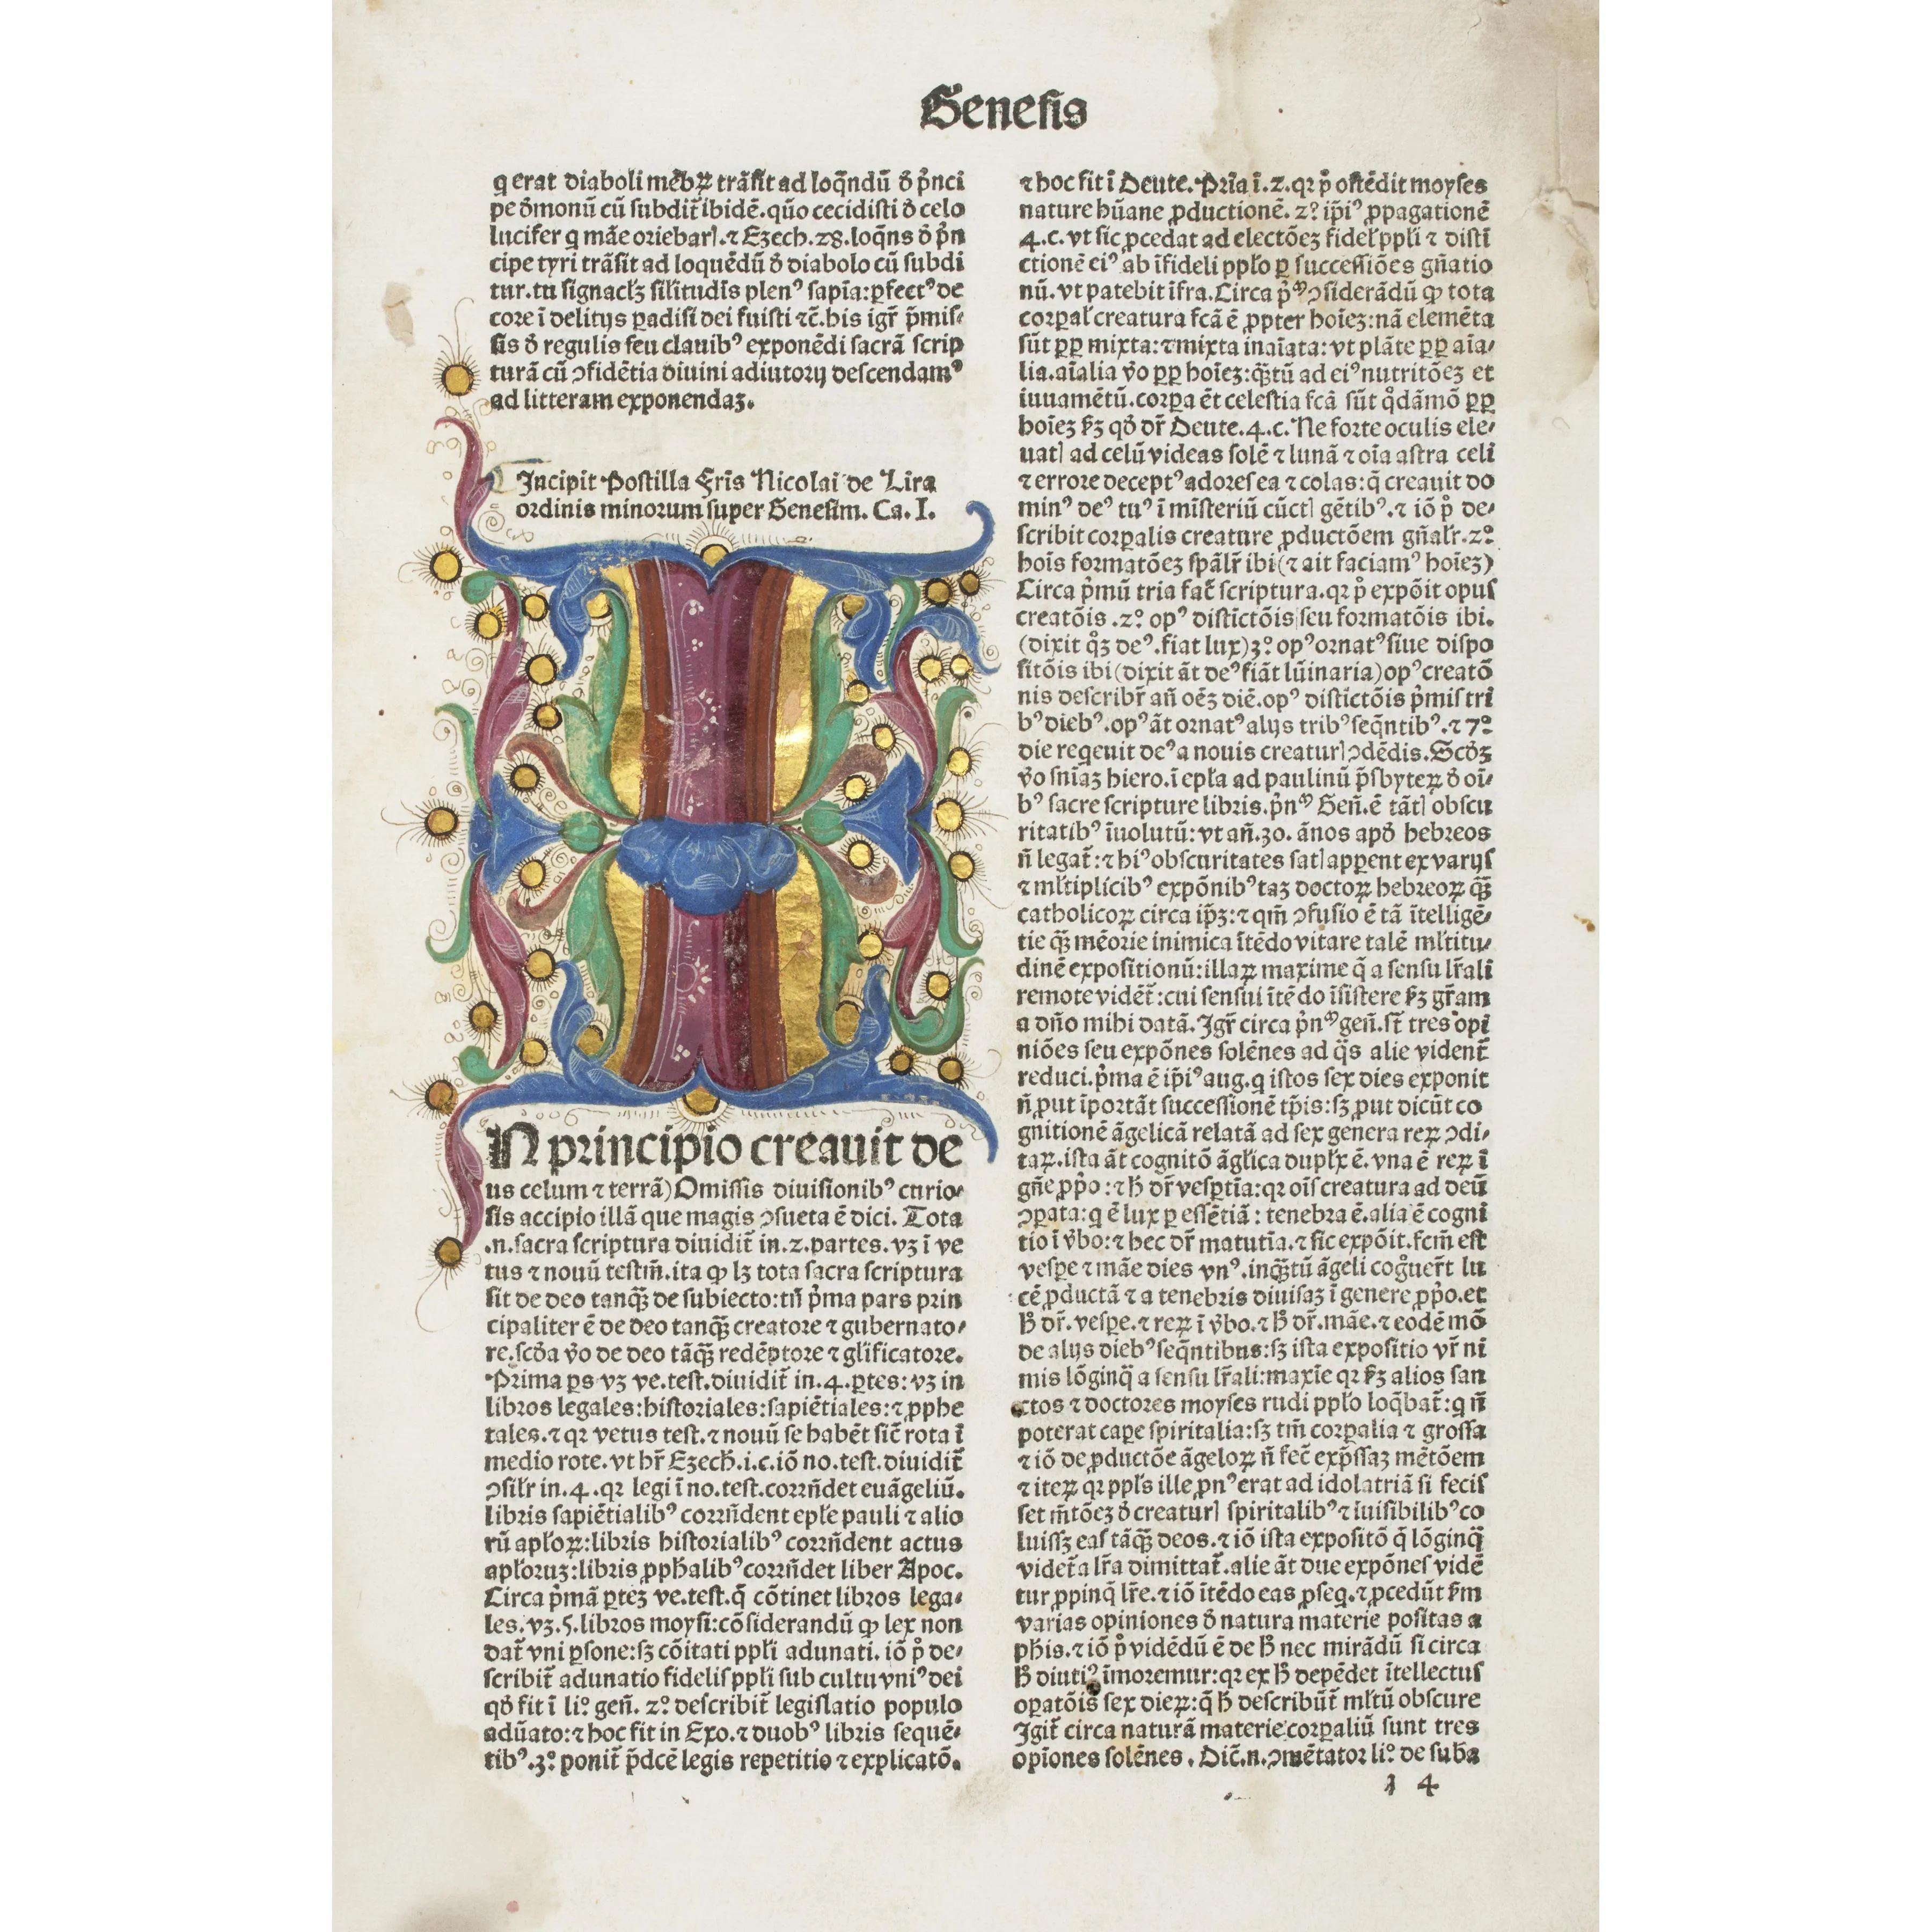 Genesis
q erat diaboli mēbꝝ trāsit ad loq̄ndū ð p̄nci
pe ðmonū cū subdit̄ ibidē. qūo cecidisti ð celo
lucifer q māe oriebarꝭ. ⁊ Ezech. 28. loq̄ns ð p̄n
cipe tyri trāsit ad loquēdū ð diabolo cū subdi
tur. tu signacꝉꝫ siꝉitudīs plenꝰ sapīa: ꝑfectꝰ de
core ī delitijs ꝑadisi dei fuisti ⁊c̄. his igr̄ p̄mis⸗
sis ð regulis seu clauibꝰ exponēdi sacrā scrip
turā cū ꝯfidētia diuini adiutorij descendamꝰ
ad litteram exponendaꝫ.
Incipit Postilla Fr̄is Nicolai de Lira
ordinis minorum super Genesim. Ca. I.
IN principio creauit de
us celum ⁊ terrā) Omissis diuisionibꝰ curio⸗
sis accipio illā que magis ꝯsueta ē dici. Tota
.n. sacra scriptura diuidit̄ in .2. partes. vꝫ ī ve
tus ⁊ nouū testm̄. ita ꝙ lꝫ tota sacra scriptura
sit de deo tanꝗ̄ de subiecto: tn̄ p̓ma pars prin
cipaliter ē de deo tanꝗ̄ creatore ⁊ gubernato⸗
re. scða v̓o de deo tāꝗ̄ redēptore ⁊ glīficatore.
Prima ꝑs vꝫ ve. test. diuidit̄ in .4. ꝑtes: vꝫ in
libros legales: historiales: sapiētiales: ⁊ ꝓphe
tales. ⁊ qꝛ vetus test. ⁊ nouū se habēt sic̄ rota ī
medio rote. vt hr̄ Ezech̄. i. c. iō no. test. diuidit̄
ꝯsiꝉr in .4. qꝛ legi ī no. test. corrn̄det euāgeliū.
libris sapiētialibꝰ corrn̄dent epꝉe pauli ⁊ alio
rū apꝉoꝝ: libris historialibꝰ corrn̄dent actus
apꝉoruꝫ: libris ꝓph̄alibꝰ corrn̄det liber Apoc.
Circa p̓mā ꝑteꝫ ve. test. q̄ cōtinet libros lega⸗
les. vꝫ .5. libros moysi: cōsiderandū ꝙ lex non
dat̄ vni ꝑsone: sꝫ cōitati ppꝉi adunati. iō p̊ de⸗
scribit̄ adunatio fidelis ppꝉi sub cultu vniꝰ dei
qð fit ī li° gen̄. 2° describit̄ legislatio populo
adūato: ⁊ hoc fit in Exo. ⁊ duobꝰ libris sequē⸗
tibꝰ. 3° ponit̄ p̄dcē legis repetitio ⁊ explicatō.
⁊ hoc fit ī Deute. Prīa ī .2. qꝛ p̊ ostēdit moyses
nature hūane ꝓductionē. 2° ip̄iꝰ ꝓpagationē
4. c. vt sic ꝓcedat ad electōeꝫ fideꝉ ppꝉi ⁊ disti
ctionē eiꝰ ab īfideli ppꝉo ꝑ successiōes gn̄atio
nū. vt patebit īfra. Circa p̓ꝰ ꝯsiderādū ꝙ tota
corꝑaꝉ creatura fcā ē ꝓpter hoīeꝫ: nā elemēta
sūt ꝓp mixta: ⁊ mixta inaīata: vt plāte ꝓp aīa⸗
lia. aīalia v̓o ꝓp hoīeꝫ: ꝗ̄tū ad eiꝰ nutritōeꝫ et
iuuamētū. corꝑa ēt celestia fcā sūt q̊dāmō ꝓp
hoīeꝫ ẜꝫ qð dr̄ Deute. 4. c. Ne forte oculis ele⸗
uatꝭ ad celū videas solē ⁊ lunā ⁊ oīa astra celi
⁊ errore deceptꝰ adores ea ⁊ colas: q̄ creauit do
minꝰ deꝰ tuꝰ ī misteriū cūctꝭ gētibꝰ. ⁊ iō p̊ de⸗
scribit corꝑalis creature ꝓductōem gn̄aꝉr. 2°
hoīs formatōeꝫ spālr̄ ibi (⁊ ait faciamꝰ hoīeꝫ)
Circa p̓mū tria fac̄ scriptura. qꝛ p̊ expōit opus
creatōis. 2° opꝰ distīctōis seu formatōis ibi.
(dixit q̊ꝫ deꝰ. fiat lux) 3° opꝰ ornatꝰ siue dispo
sitōis ibi (dixit āt deꝰ fiāt lūinaria) opꝰ creatō
nis describr̄ an̄ oēꝫ diē. opꝰ distīctōis p̓mis tri
bꝰ diebꝰ. opꝰ āt ornatꝰ alijs tribꝰ seq̄ntibꝰ. ⁊ 7°
die reqeuit deꝰ a nouis creaturꝭ ꝯdēdis. Scðꝫ
v̓o sn̄iaꝫ hiero. ī epꝉa ad paulinū p̄sbyteꝝ ð oī⸗
bꝰ sacre scripture libris. p̓nꝰ Gen̄. ē tātꝭ obscu
ritatibꝰ īuolutū: vt an̄ .30. ānos apð hebreos
n̄ legat̄: ⁊ hiꝰ obscuritates satꝭ apꝑent ex varijs
⁊ mꝉtiplicibꝰ expōnibꝰ taꝫ doctoꝝ hebreoꝝ ꝗ̄
catholicoꝝ circa ip̄ꝫ: ⁊ qm̄ ꝯfusio ē tā ītelligē⸗
tie ꝗ̄ mēorie inimica ītēdo vitare talē mꝉtitu⸗
dinē expositionū: illaꝝ maxime q̄ a sensu lr̄ali
remote vidēt̄: cui sensui ītēdo īsistere ẜꝫ gr̄am
a dn̄o mihi datā. Igr̄ circa p̓nꝰ gen̄. st̄ tres opi
niōes seu expōnes solēnes ad q̄s alie vident̄
reduci. p̓ma ē ip̄iꝰ aug. q istos sex dies exponit
n̄ ꝓut īportāt successionē tp̄is: sꝫ ꝓut dicūt co
gnitionē āgelicā relatā ad sex genera reꝝ ꝯdi⸗
taꝝ. ista āt cognitō āgꝉica dupꝉx ē. vna ē reꝝ ī
gn̄e ꝓp̓o: ⁊ h̄ dr̄ vesꝑtīa: qꝛ oīs creatura ad deū
ꝯꝑata: q ē lux ꝑ essētiā: tenebra ē. alia ē cogni
tio ī v̓bo: ⁊ hec dr̄ matutīa. ⁊ sic expōit. fcm̄ est
vesꝑe ⁊ māe dies vnꝰ. inꝗ̄tū āgeli cog̊uer̄t lu
cē ꝓductā ⁊ a tenebris diuisaꝫ ī genere ꝓp̓o. et
h̄ dr̄. vesꝑe. ⁊ reꝝ ī v̓bo. ⁊ h̄ dr̄. māe. ⁊ eodē mō
de alijs diebꝰ seq̄ntibus: sꝫ ista expositio vr̄ ni
mis lōginq̄ a sensu lr̄ali: maxīe qꝛ ẜꝫ alios san
ctos ⁊ doctores moyses rudi ppꝉo loq̄bat̄: q n̄
poterat caꝑe spiritalia: sꝫ tm̄ corꝑalia ⁊ grossa
⁊ iō de ꝓductōe āgeloꝝ n̄ fec̄ exp̄ssaꝫ mētōem
⁊ iteꝝ qꝛ ppꝉs ille ꝓnꝰ erat ad idolatriā si fecis
set m̄tōeꝫ ð creaturꝭ spiritalibꝰ ⁊ īuisibilibꝰ co
luissꝫ eas tāꝗ̄ deos. ⁊ iō ista expositō q̄ lōginq̄
videt̄ a lr̄a dimittat̄. alie āt due expōnes vidē
tur ꝓpinq̄ lr̄e. ⁊ iō ītēdo eas ꝓseq. ⁊ ꝓcedūt ẜm
varias opiniones ð natura materie positas a
ph̄is. ⁊ iō p̊ vidēdū ē de h̄ nec mirādū si circa
h̄ diutiꝰ īmoremur: qꝛ ex h̄ depēdet ītellectus
oꝑatōis sex dieꝝ: q̄ h̄ describūt̄ mꝉtū obscure
Igit̄ circa naturā materie corꝑaliū sunt tres
opīones solēnes. Dic̄. n. ꝯmētator li° de suba
1 4